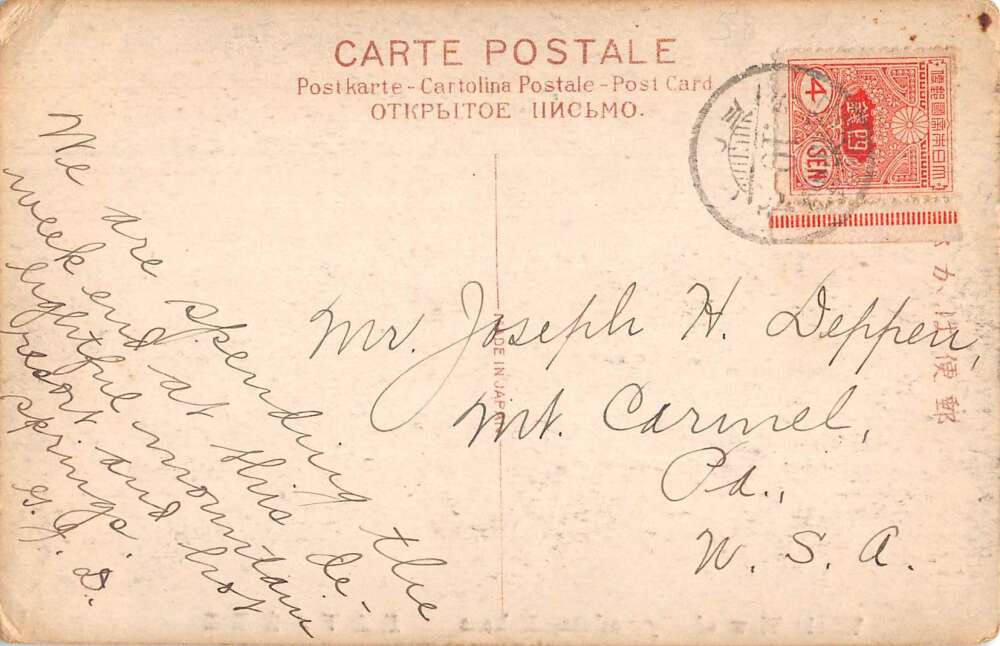 CARTE POSTALE
Postkarte - Cartolina Postale - Post Card
ОТКРЫТОЕ ПИСЬМО.
4
四
SEN
大日本帝國郵便
We are spending the
week end at this de-
lightful mountain
resort and hot
springs.
G. J. D.
Mr. Joseph H. Deppen,
Mt. Carmel,
Pa.,
U. S. A.
DE IN JAPAN
か は 便 郵